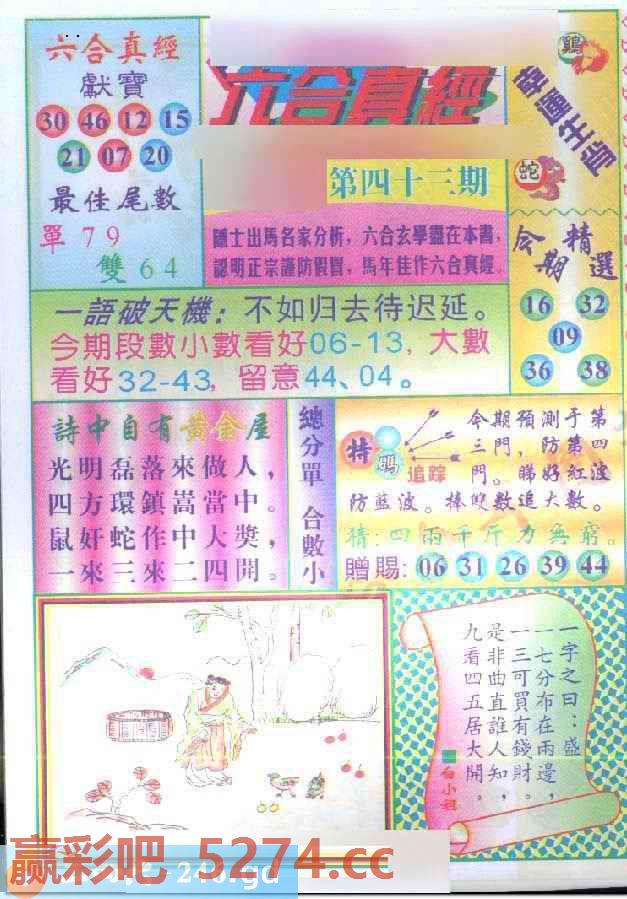 六合真經
獻寶
30 46 12 15
21 07 20
最佳尾數
單 7 9
雙 6 4
六合真經
第四十三期
隱士出馬名家分析，六合玄學盡在本書，
認明正宗謹防假冒，馬年佳作六合真經
鷄
蛇
今期精選
16 32
09
36 38
一語破天機：不如归去待迟延。
今期段數小數看好06-13，大數
看好32-43，留意44、04。
詩中自有黃金屋
光明磊落來做人，
四方環鎮嵩當中。
鼠奸蛇作中大獎，
一來三來二四開。
總分單 合數小
特碼追踪
今期預測于第
三門，防第四
門。睇好紅波
防藍波。捧雙數追大數。
猜：四兩千斤力無窮。
贈賜：06 31 26 39 44
一字之曰：盛
一七分布在兩邊，
一三可買有錢財。
是非曲直誰人知，
九看四五居大開。
白小姐
赢彩吧 5274.cc
246.gd